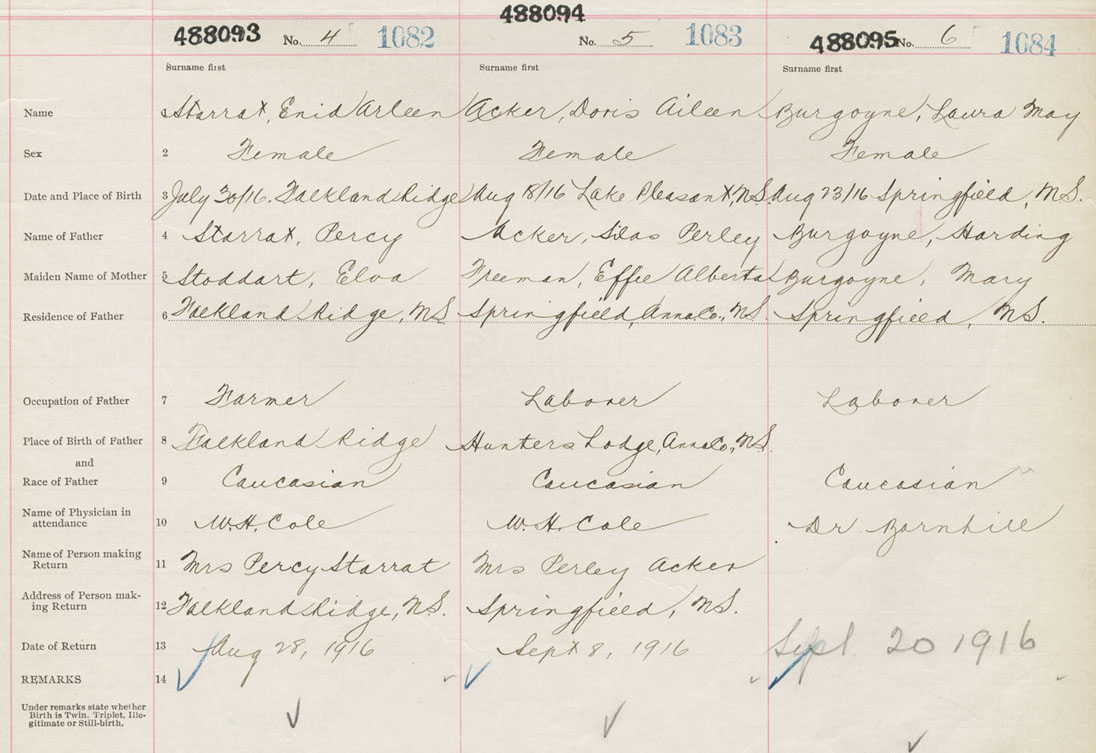 488093 No. 4 1082 488094 No. 5 1083 488095 No. 6 1084
Surname first Surname first Surname first
Name 1 Starrat, Enid Arleen Acker, Doris Aileen Burgoyne, Laura May
Sex 2 Female Female Female
Date and Place of Birth 3 July 30/16. Falkland Ridge Aug 18/16 Lake Pleasant, N.S. Aug 23/16 Springfield, N.S.
Name of Father 4 Starrat, Percy Acker, Silas Perley Burgoyne, Harding
Maiden Name of Mother 5 Stoddart, Elva Freeman, Effie Alberta Burgoyne, Mary
Residence of Father 6 Falkland Ridge, N.S. Springfield, Anna. Co., N.S. Springfield, N.S.
Occupation of Father 7 Farmer Laborer Laborer
Place of Birth of Father 8 Falkland Ridge Hunters Lodge, Anna. Co., N.S.
and
Race of Father 9 Caucasian Caucasian Caucasian
Name of Physician in
attendance 10 W.H. Cole W.H. Cole Dr Barnhill
Name of Person making
Return 11 Mrs Percy Starrat Mrs Perley Acker
Address of Person mak-
ing Return 12 Falkland Ridge, N.S. Springfield, N.S.
Date of Return 13 Aug 28, 1916 Sept 8, 1916 Sept. 20 1916
REMARKS 14
Under remarks state whether
Birth is Twin, Triplet, Ille-
gitimate or Still-birth.